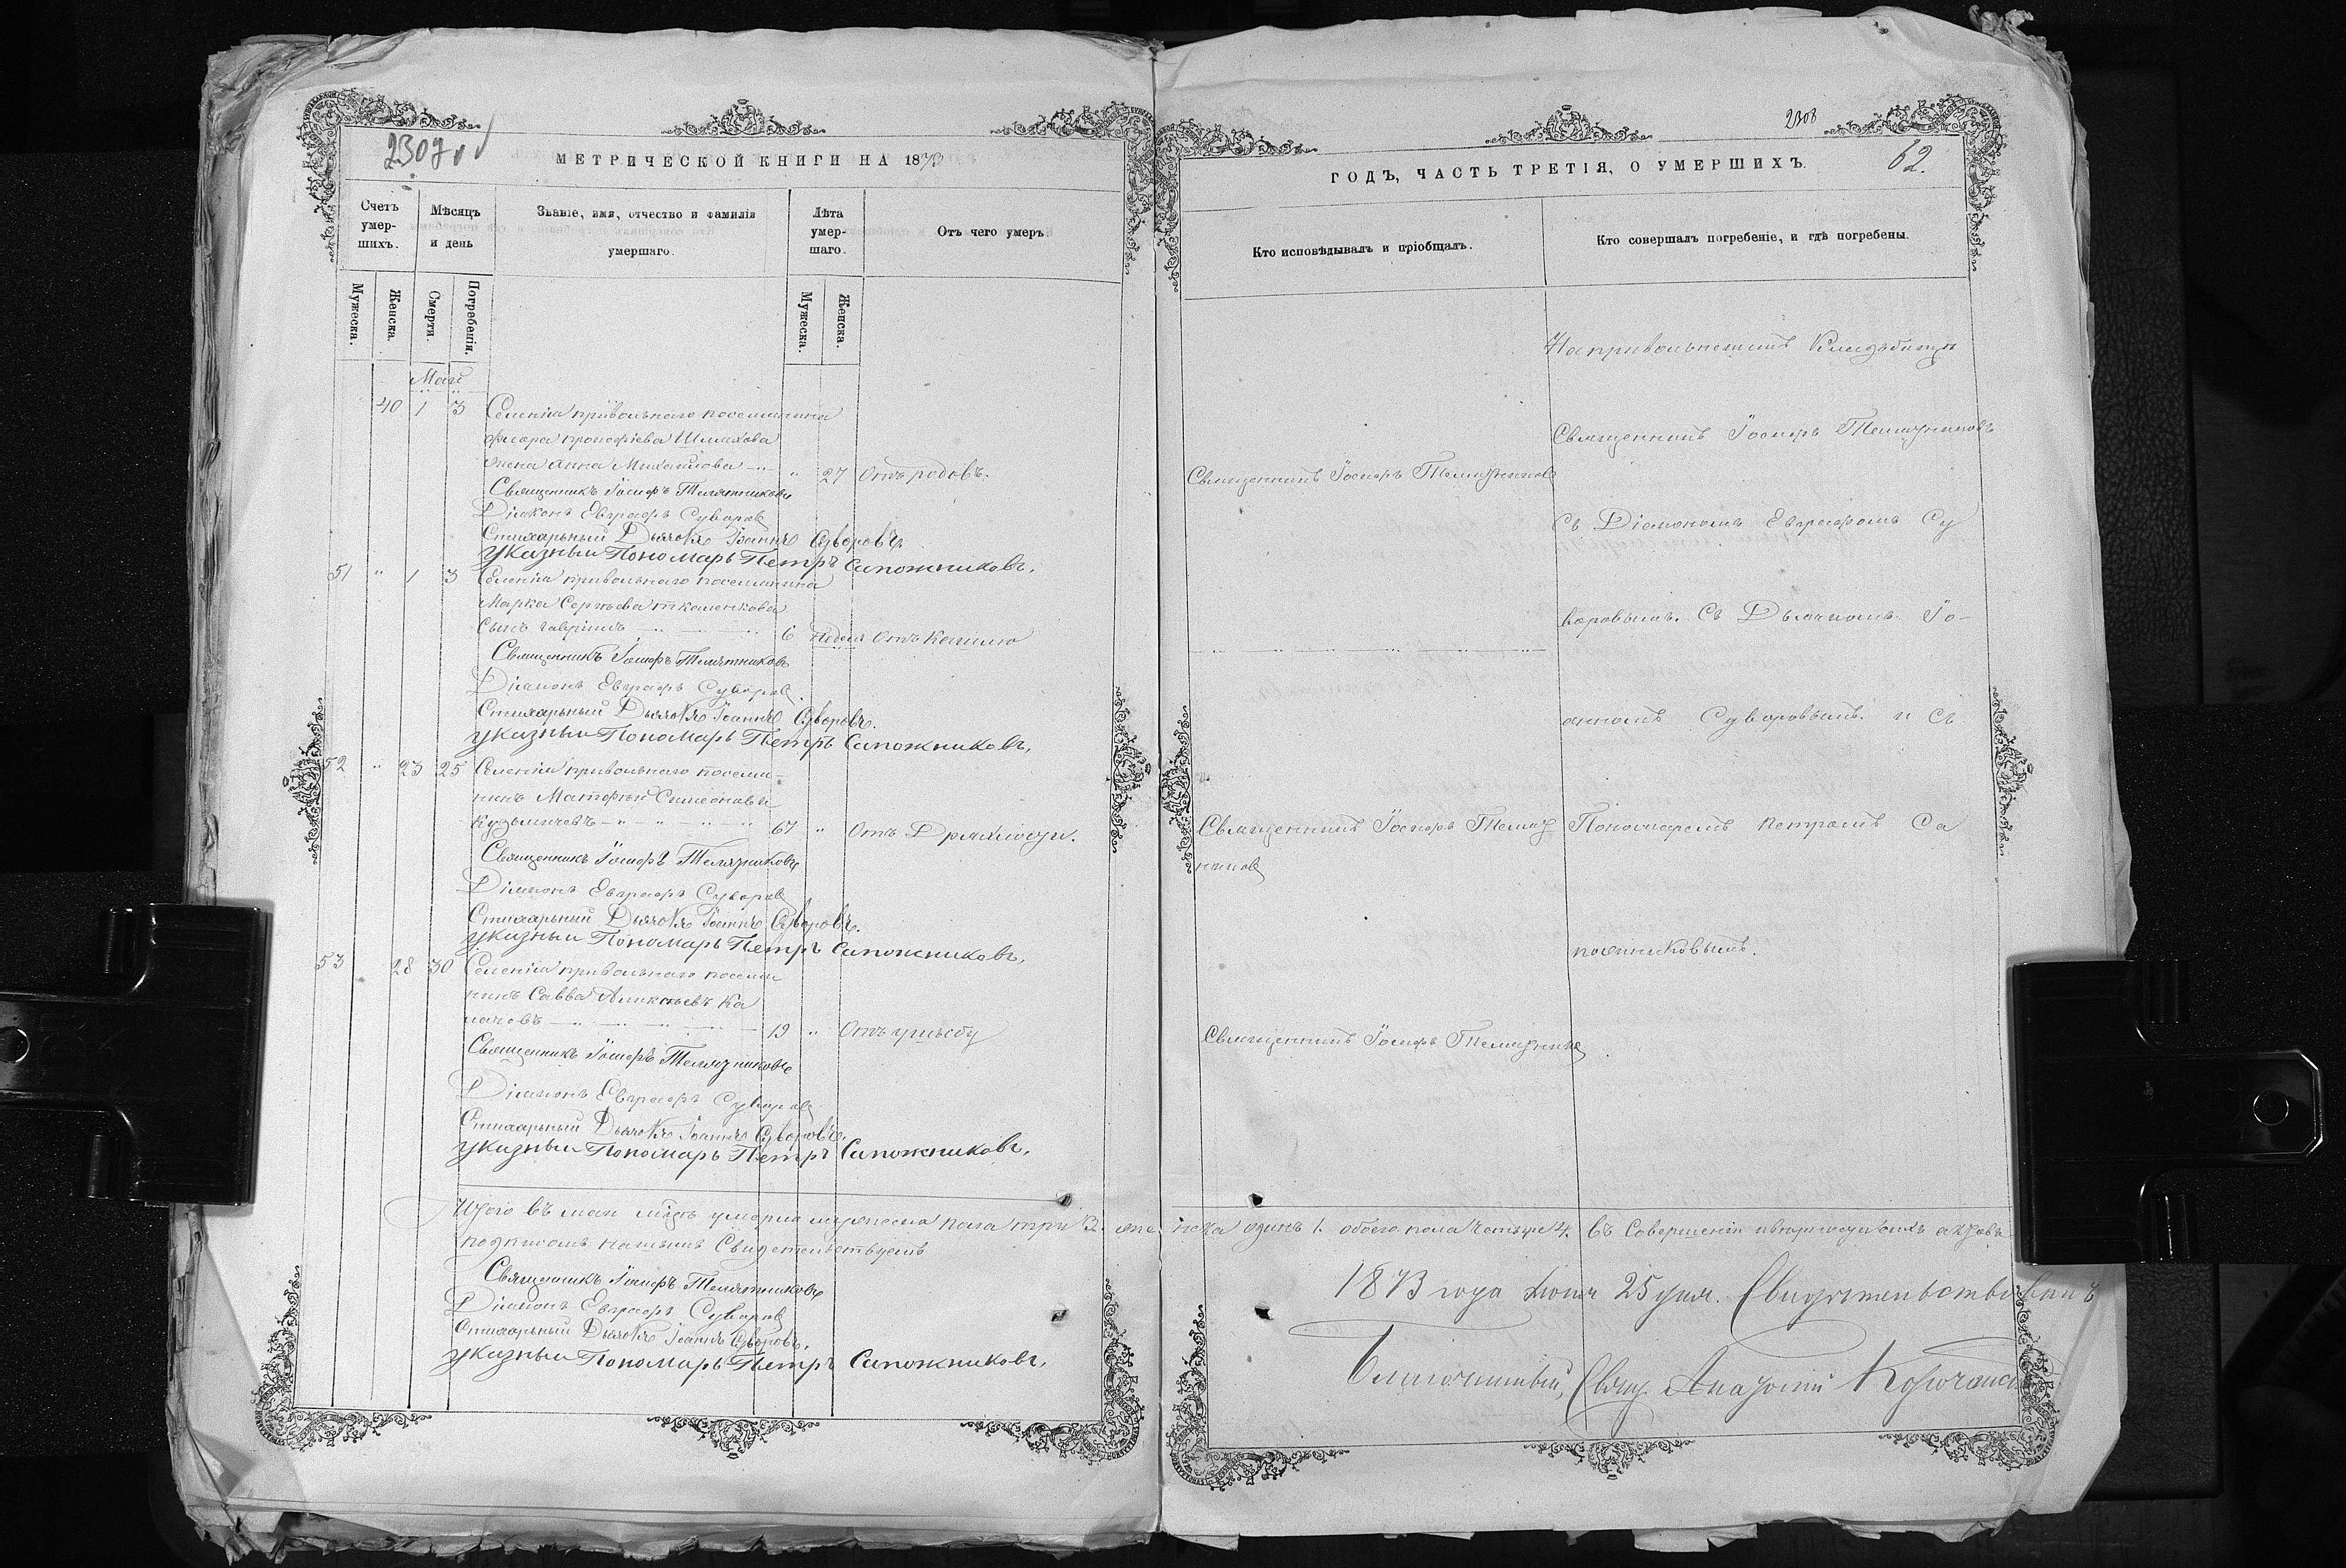 2307
МЕТРИЧЕСКОЙ КНИГИ НА 1873
Счетъ умер-шихъ.
Мѣсяцъ и день
Званіе, имя, отчество и фамилія умершаго.
Лѣта умер-шаго.
Отъ чего умеръ.
Мужеска.
Женска.
Смерти.
Погребенія.
Мужеска.
Женска.
Май
40 1 3 Селенія привольнаго поселянина
Флора прокофіева
жена Анна Михайлова " 27 Отъ родовъ.
Священникъ Іосифъ Телятниковъ
Діаконъ Евграфъ Суворов
Стихарный Дьячокъ Іоаннъ Суворовъ.
Указный Пономарь Петръ Сапожниковъ.
51 " 1 3 Селенія привольнаго поселянина
Марка Сергѣева
Сынъ гавріилъ 6 недель Отъ Кашлю
Священникъ Іосифъ Телятниковъ
Діаконъ Евграфъ Суворов
Стихарный Дьячокъ Іоаннъ Суворовъ.
Указный Пономарь Петръ Сапожниковъ.
52 " 23 25 Селенія привольнаго поселя-
нинъ Матофый Симеоновъ
Кузьмичевъ 67 " Отъ Дряхлости.
Священникъ Іосифъ Телятниковъ
Діаконъ Евграфъ Суворов
Стихарный Дьячокъ Іоаннъ Суворовъ.
Указный Пономарь Петръ Сапожниковъ.
53 28 30 Селенія привольнаго поселя
нинъ Савва Алексѣевъ Ка
19 " Отъ
Священникъ Іосифъ Телятниковъ
Діаконъ Евграфъ Суворов
Стихарный Дьячокъ Іоаннъ Суворовъ.
Указный Пономарь Петръ Сапожниковъ.
Итого въ маи умерло мужеска пола три 3. жен
подписомъ нашимъ Свидетельствуемъ
Священникъ Іосифъ Телятниковъ
Діаконъ Евграфъ Суворов
Стихарный Дьячокъ Іоаннъ Суворовъ.
Указный Пономарь Петръ Сапожниковъ.
2308
ГОДЪ, ЧАСТЬ ТРЕТІЯ, О УМЕРШИХЪ.
62.
Кто исповѣдывалъ и пріобщалъ.
Кто совершалъ погребеніе, и гдѣ погребены.
На привольненскомъ Кладбищи
Священникъ Іосифъ Телятниковъ
Священникъ Іосифъ Телятников
Съ Діакономъ Евграфомъ Су
воровымъ. Съ Дьячкомъ Іо-
анномъ Суворовымъ. и съ
Священникъ Іосифъ Телят
ников
Пономаремъ петромъ Са
пожниковымъ.
Священникъ Іосифъ Телятников
пола одинъ 1. обоего пола четыре 4. въ Совершеніи актовъ
1873 года Іюня 25 дня. Свидѣтельствовалъ
Благочинный, Свящ. Анатолий